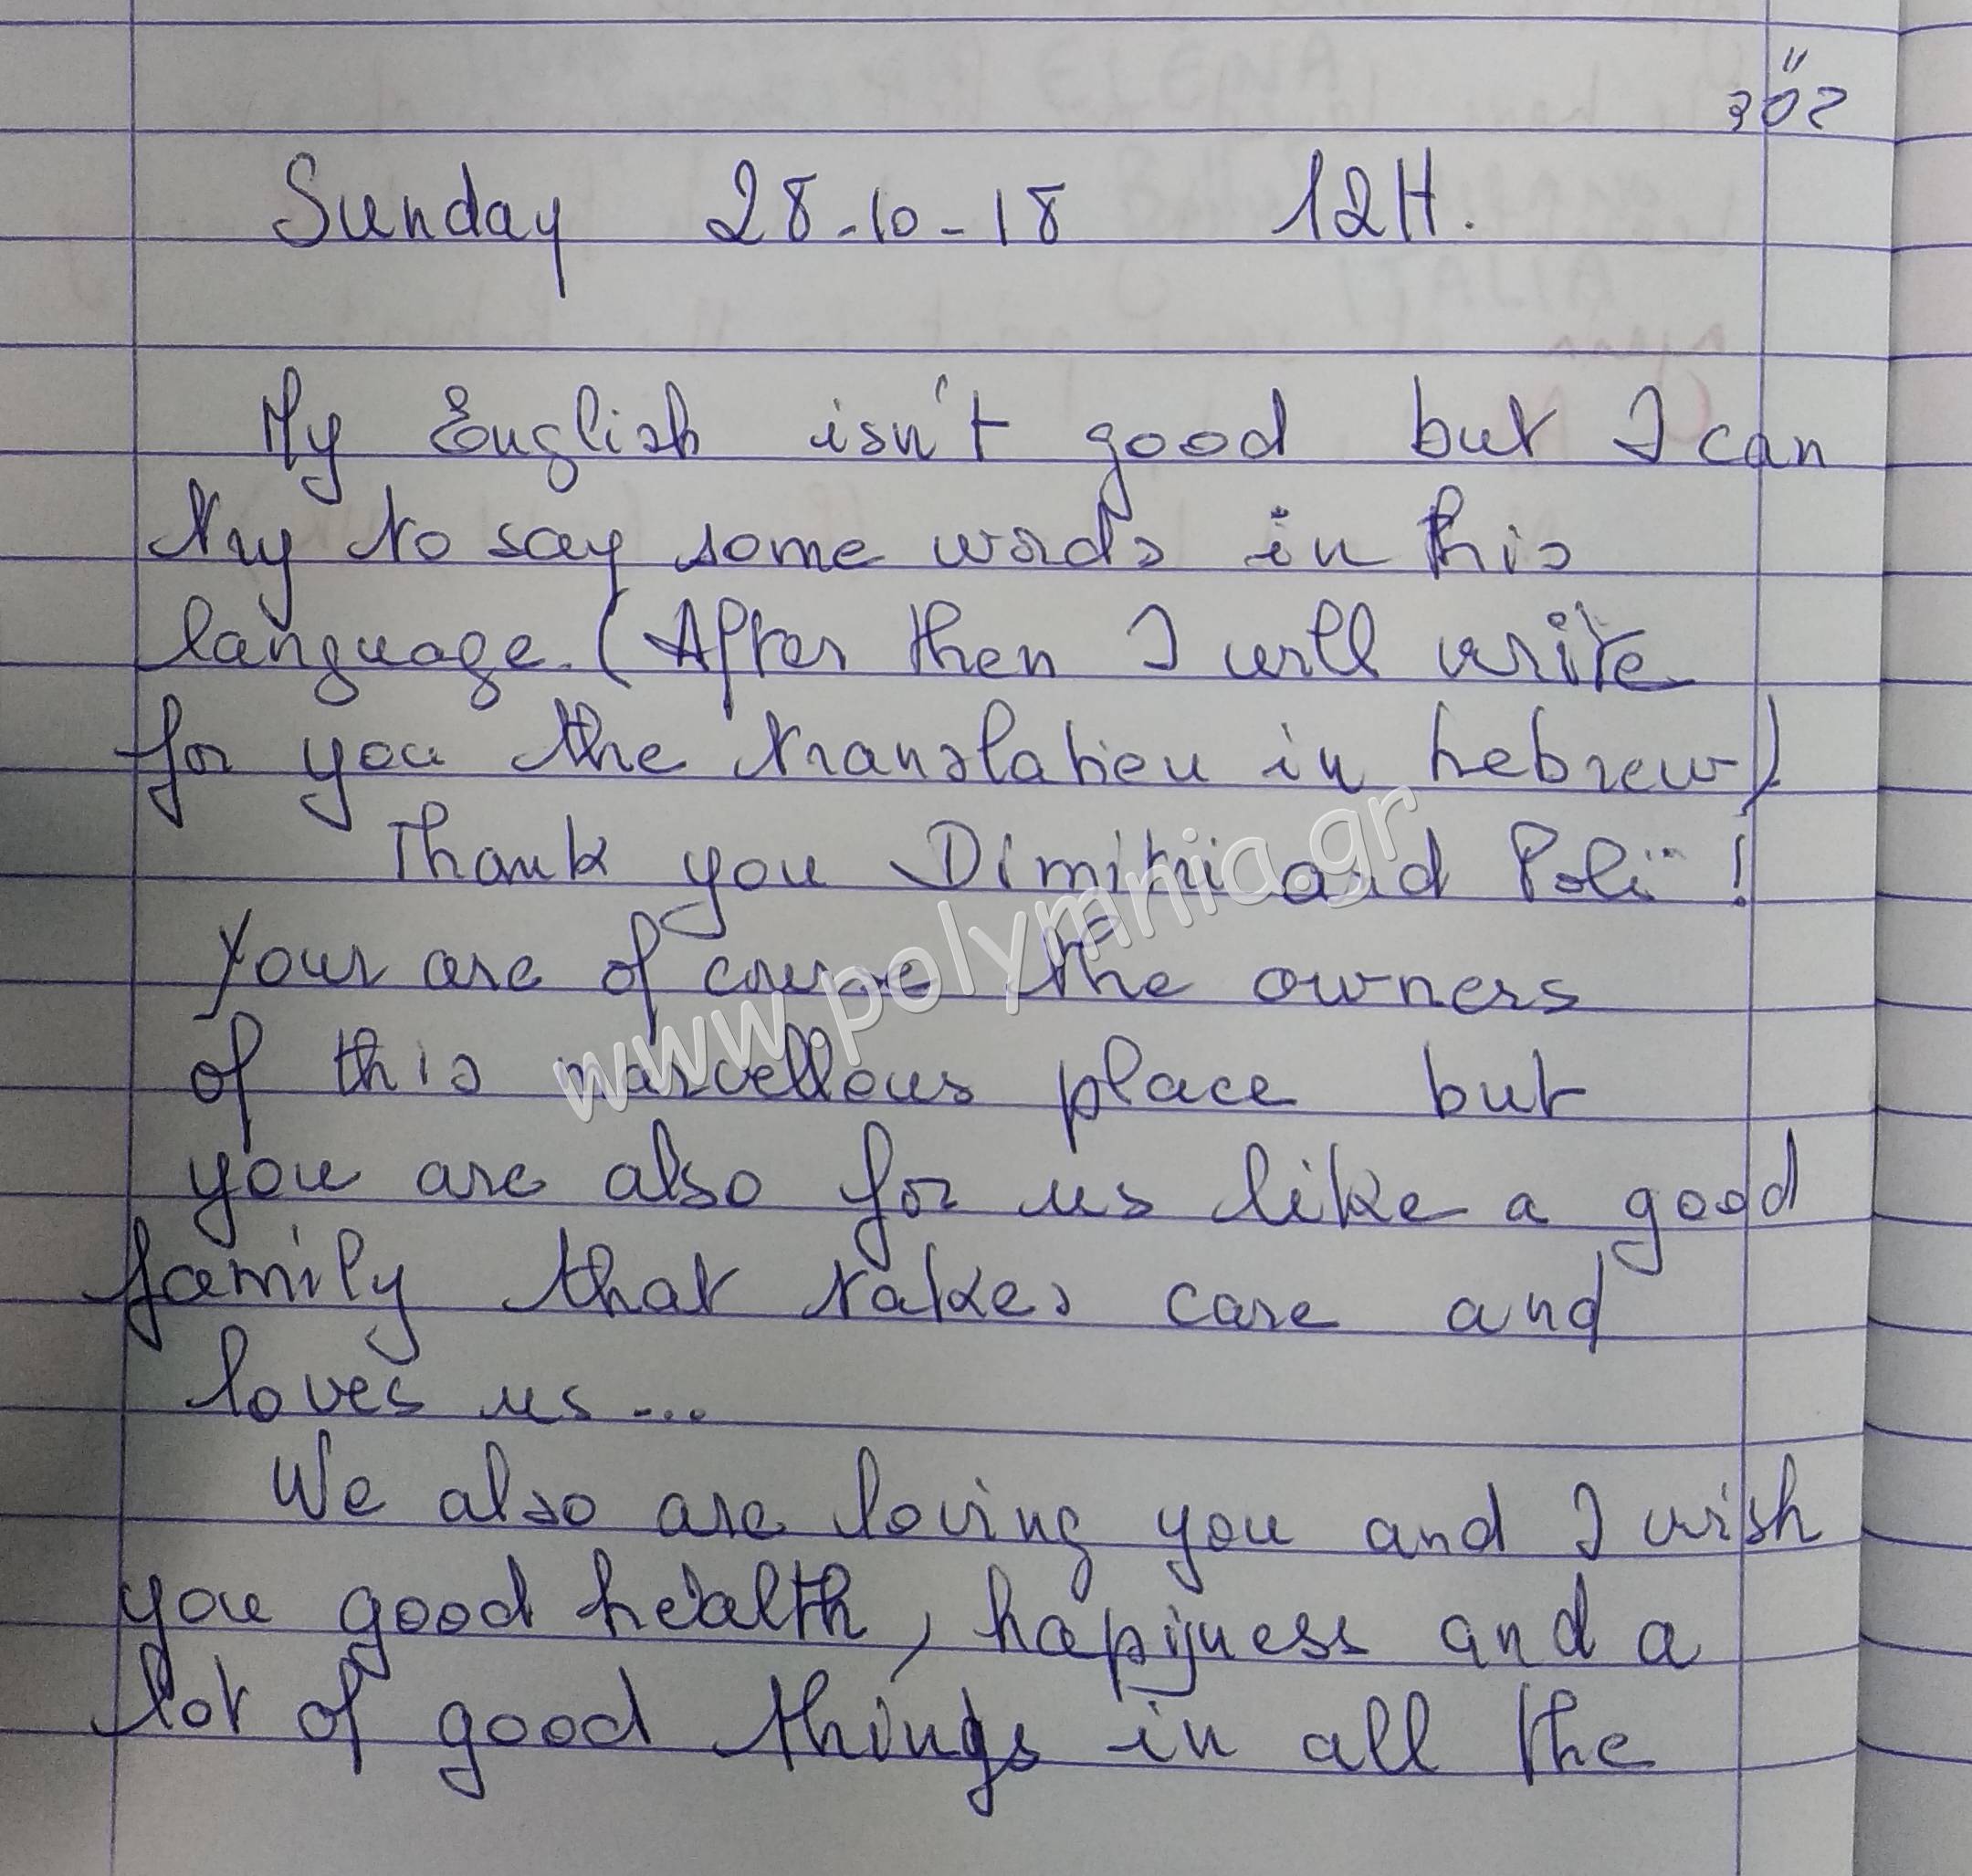 בס"ד
Sunday 28-10-18 12H.
My English isn't good but I can
try to say some words in this
language. (After then I will write
for you the translation in hebrew)
Thank you Dimitri and Poli !
Your are of course the owners
of this marvellous place but
you are also for us like a good
family that takes care and
loves us...
We also are loving you and I wish
you good health, happyness and a
lot of good things in all the
www.polymnia.gr